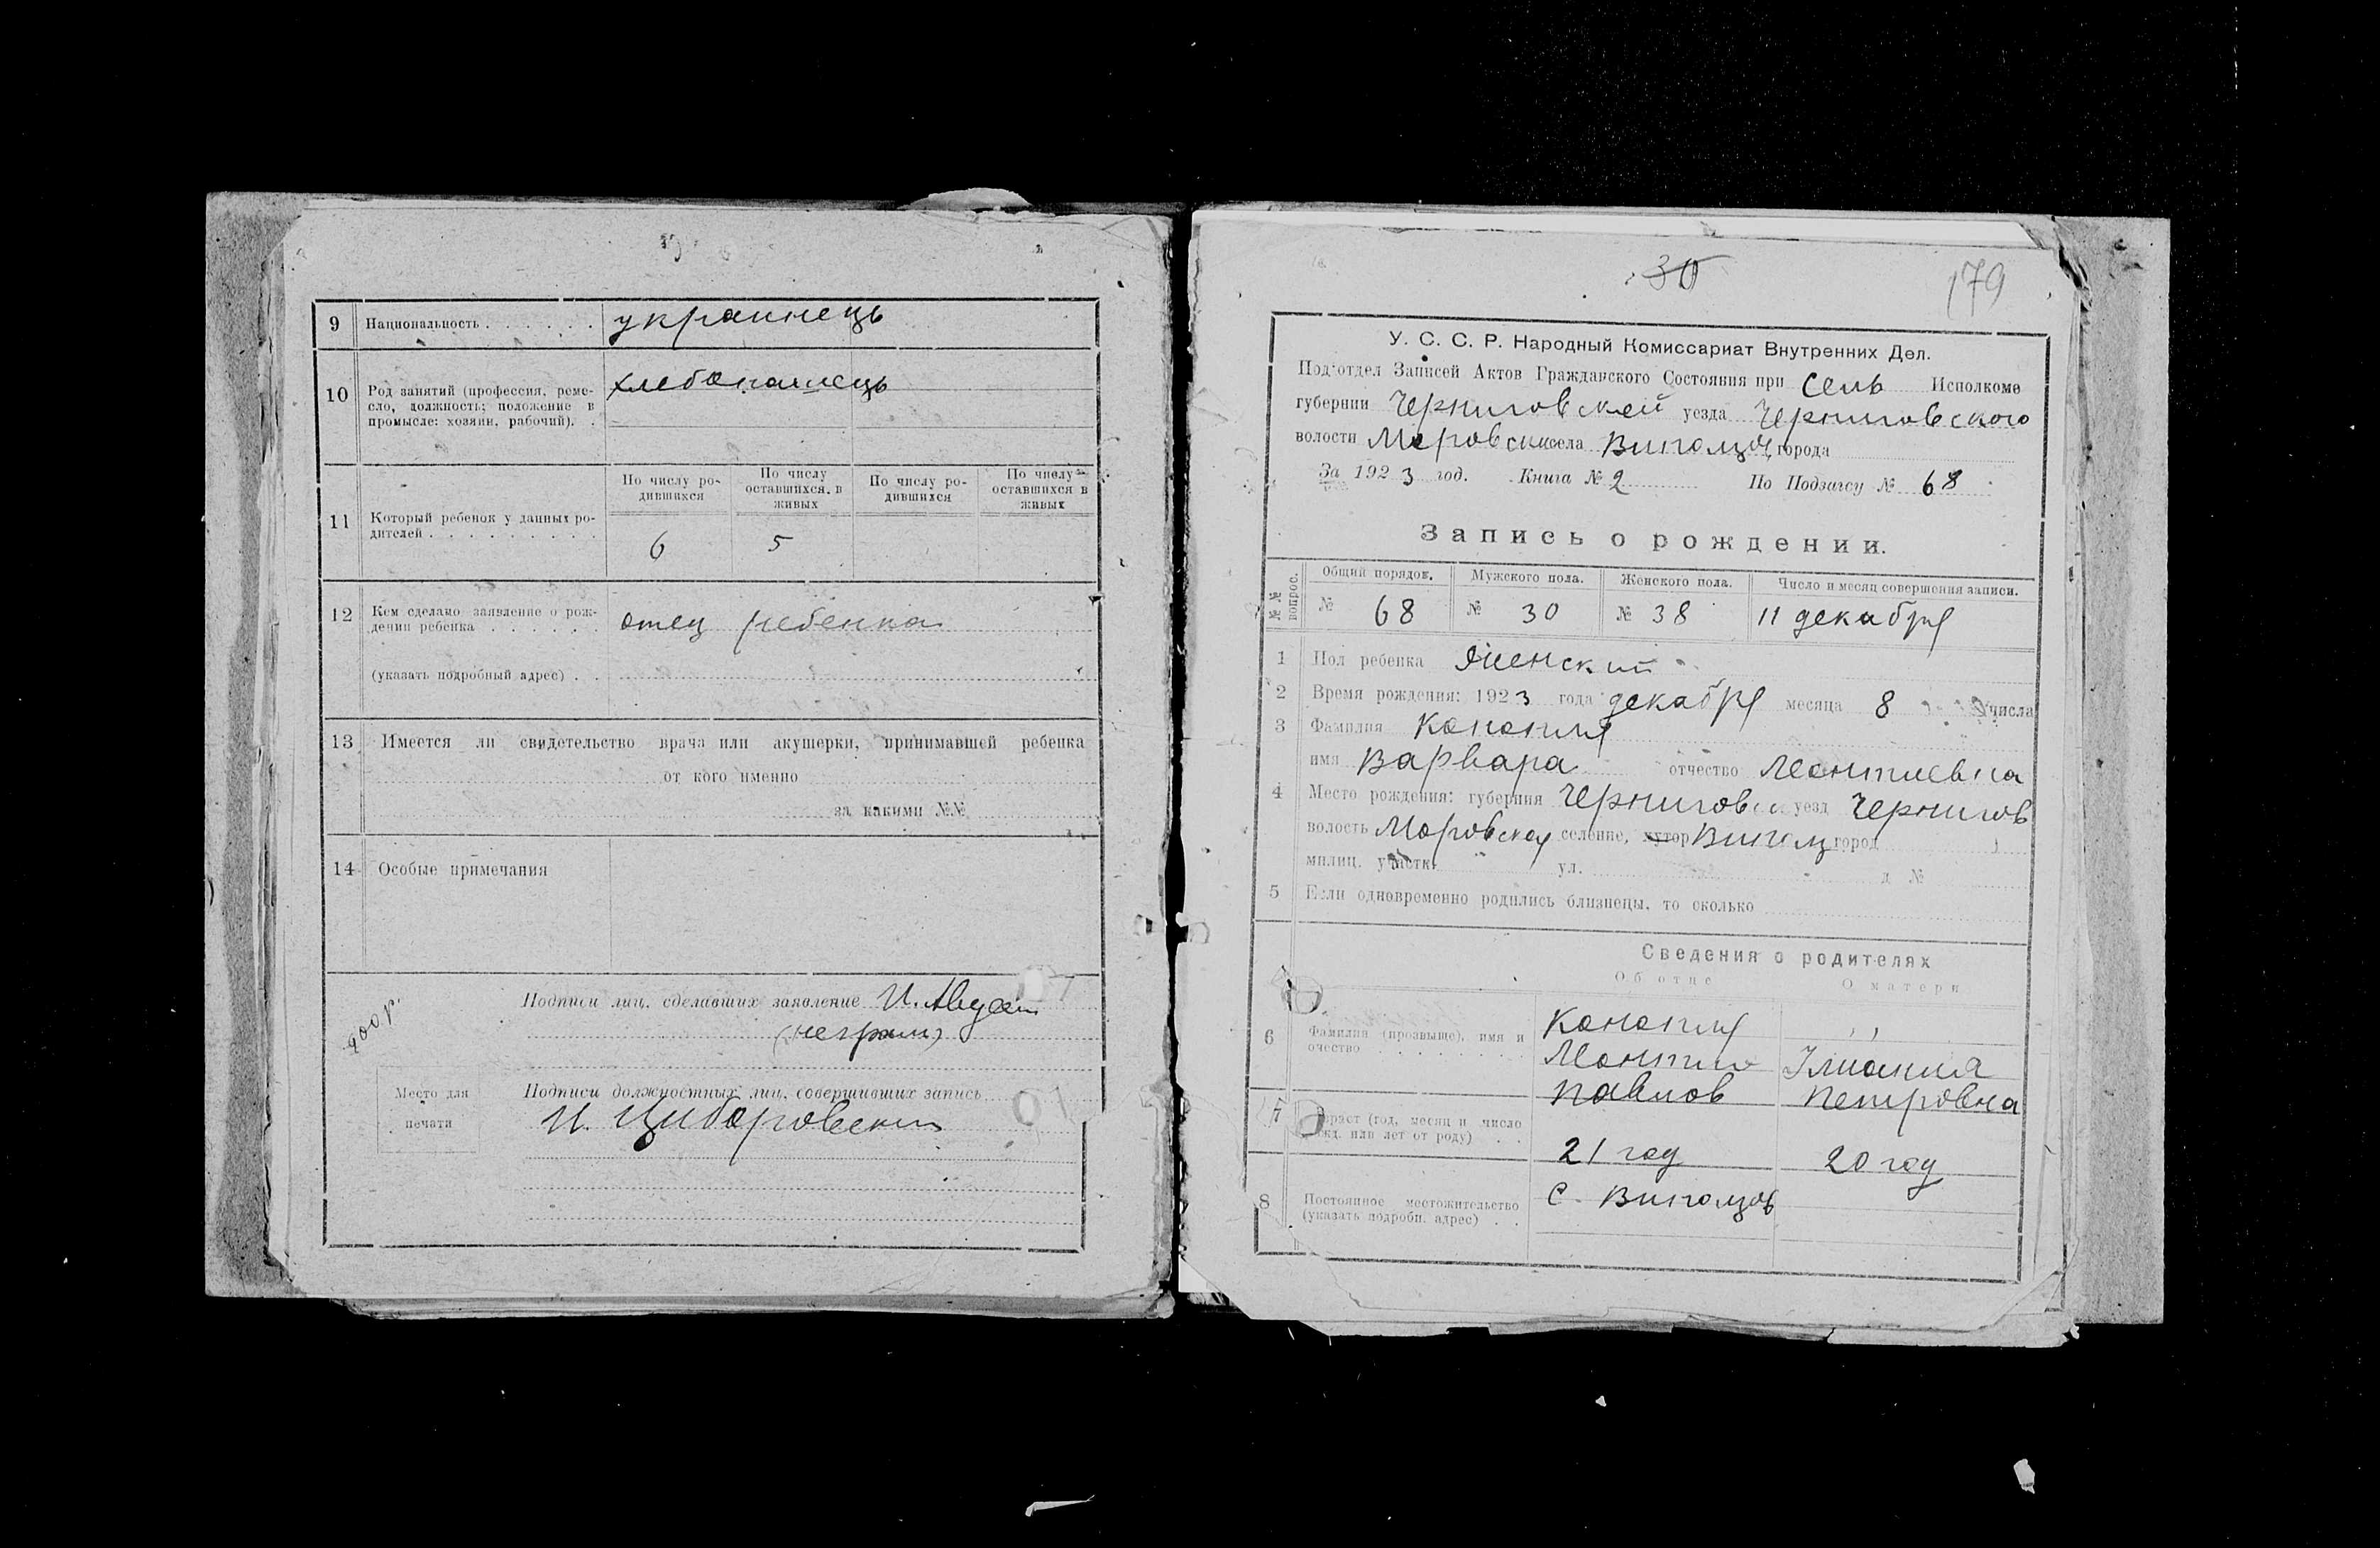 9 Национальность . . . . . . украинець
10 Род занятий (профессия, реме-
сло, должность; положение в
промысле: хозяин, рабочий). .
хлебопашець
По числу ро-
дившихся
По числу
оставшихся в
живых
По числу ро-
дившихся
По числу
оставшихся в
живых
11 Который ребенок у данных ро-
дителей . . . . . . . . .
6 5
12 Кем сделано заявление о рож-
дении ребенка . . . . . .
отец ребенка
(указать подробный адрес) . .
13 Имеется ли свидетельство врача или акушерки, принимавшей ребенка
от кого именно
за какими №№
14 Особые примечания
Подписи лиц, сделавших заявление И.
(неграм)
Место для
печати
Подписи должностных лиц, совершивших запись
И. Циборовский
30
179
У. С. С. Р. Народный Комиссариат Внутренних Дел.
Под'отдел Записей Актов Гражданского Состояния при Сель Исполкоме
губернии Черниговской уезда Черниговского
волости села города
За 1923 год. Книга № 2 По Подзагсу № 68
Запись о рождении.
№№ вопрос.
Общий порядок. Мужского пола. Женского пола. Число и месяц совершения записи.
№ 68 № 30 № 38 11 декабря
1 Пол ребенка Женский
2 Время рождения: 1923 года декабря месяца 8 числа
3 Фамилия Конопля
имя Варвара отчество Леонтиевна
4 Место рождения: губерния Черниговск уезд Чернигов
волость Моровская селение, хутор город
милиц. участк. ул. д №
5 Если одновременно родились близнецы, то сколько
Сведения о родителях
Об отце О матери
6 Фамилия (прозвище), имя и
очество . . . . . . . .
Конопля ,,
Леонтий Улиания
Павлов Петровна
7 Возраст (год, месяц и число
рожд. или лет от роду) . .
21 год 20 год
8 Постоянное местожительство
(указать подробн. адрес) . .
с.